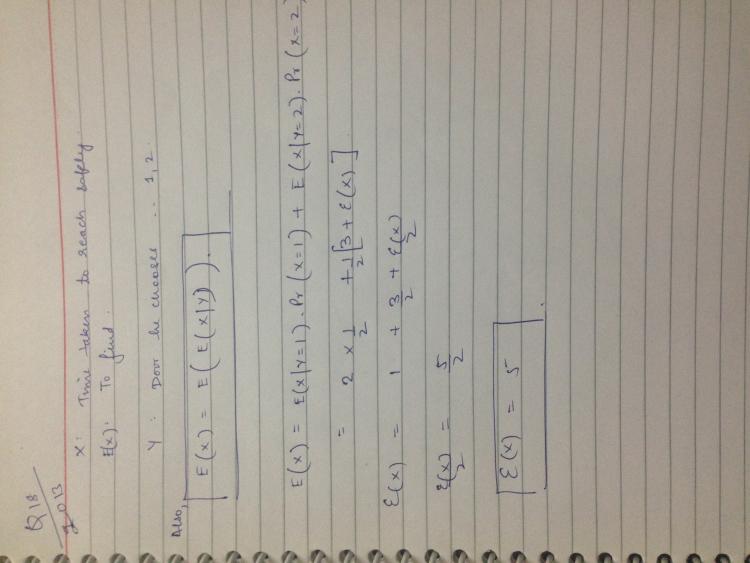 Q18
2013
X: Time taken to reach safely.
E(x): To find.
Y: Door he chooses .. 1,2.
Also,
E(x) = E(E(x|y)).
E(x) = E(x|y=1).Pr(x=1) + E(x|y=2).Pr(x=2)
= 2 x 1/2 + 1/2[3 + E(x)]
E(x) = 1 + 3/2 + E(x)/2
E(x)/2 = 5/2
E(x) = 5.